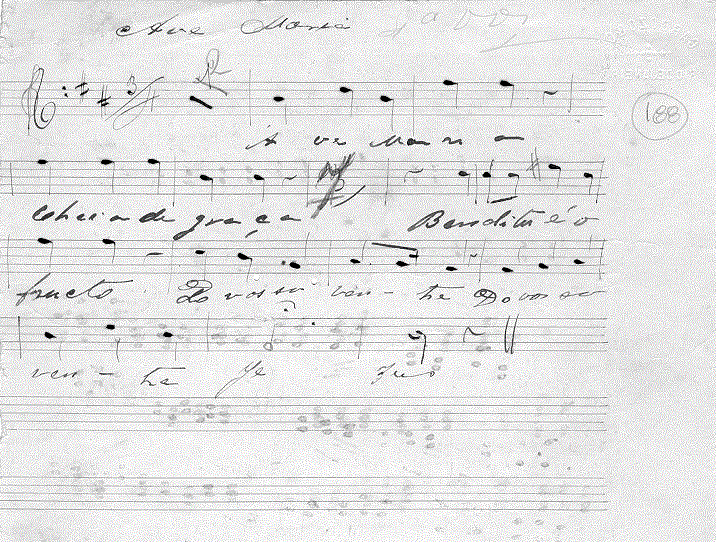 Ave Maria
188
3/4
A ve Mari a
cheia de graça Bendito é o
fructo Do vosso ven - tre Do vosso
ven - tre Je sus